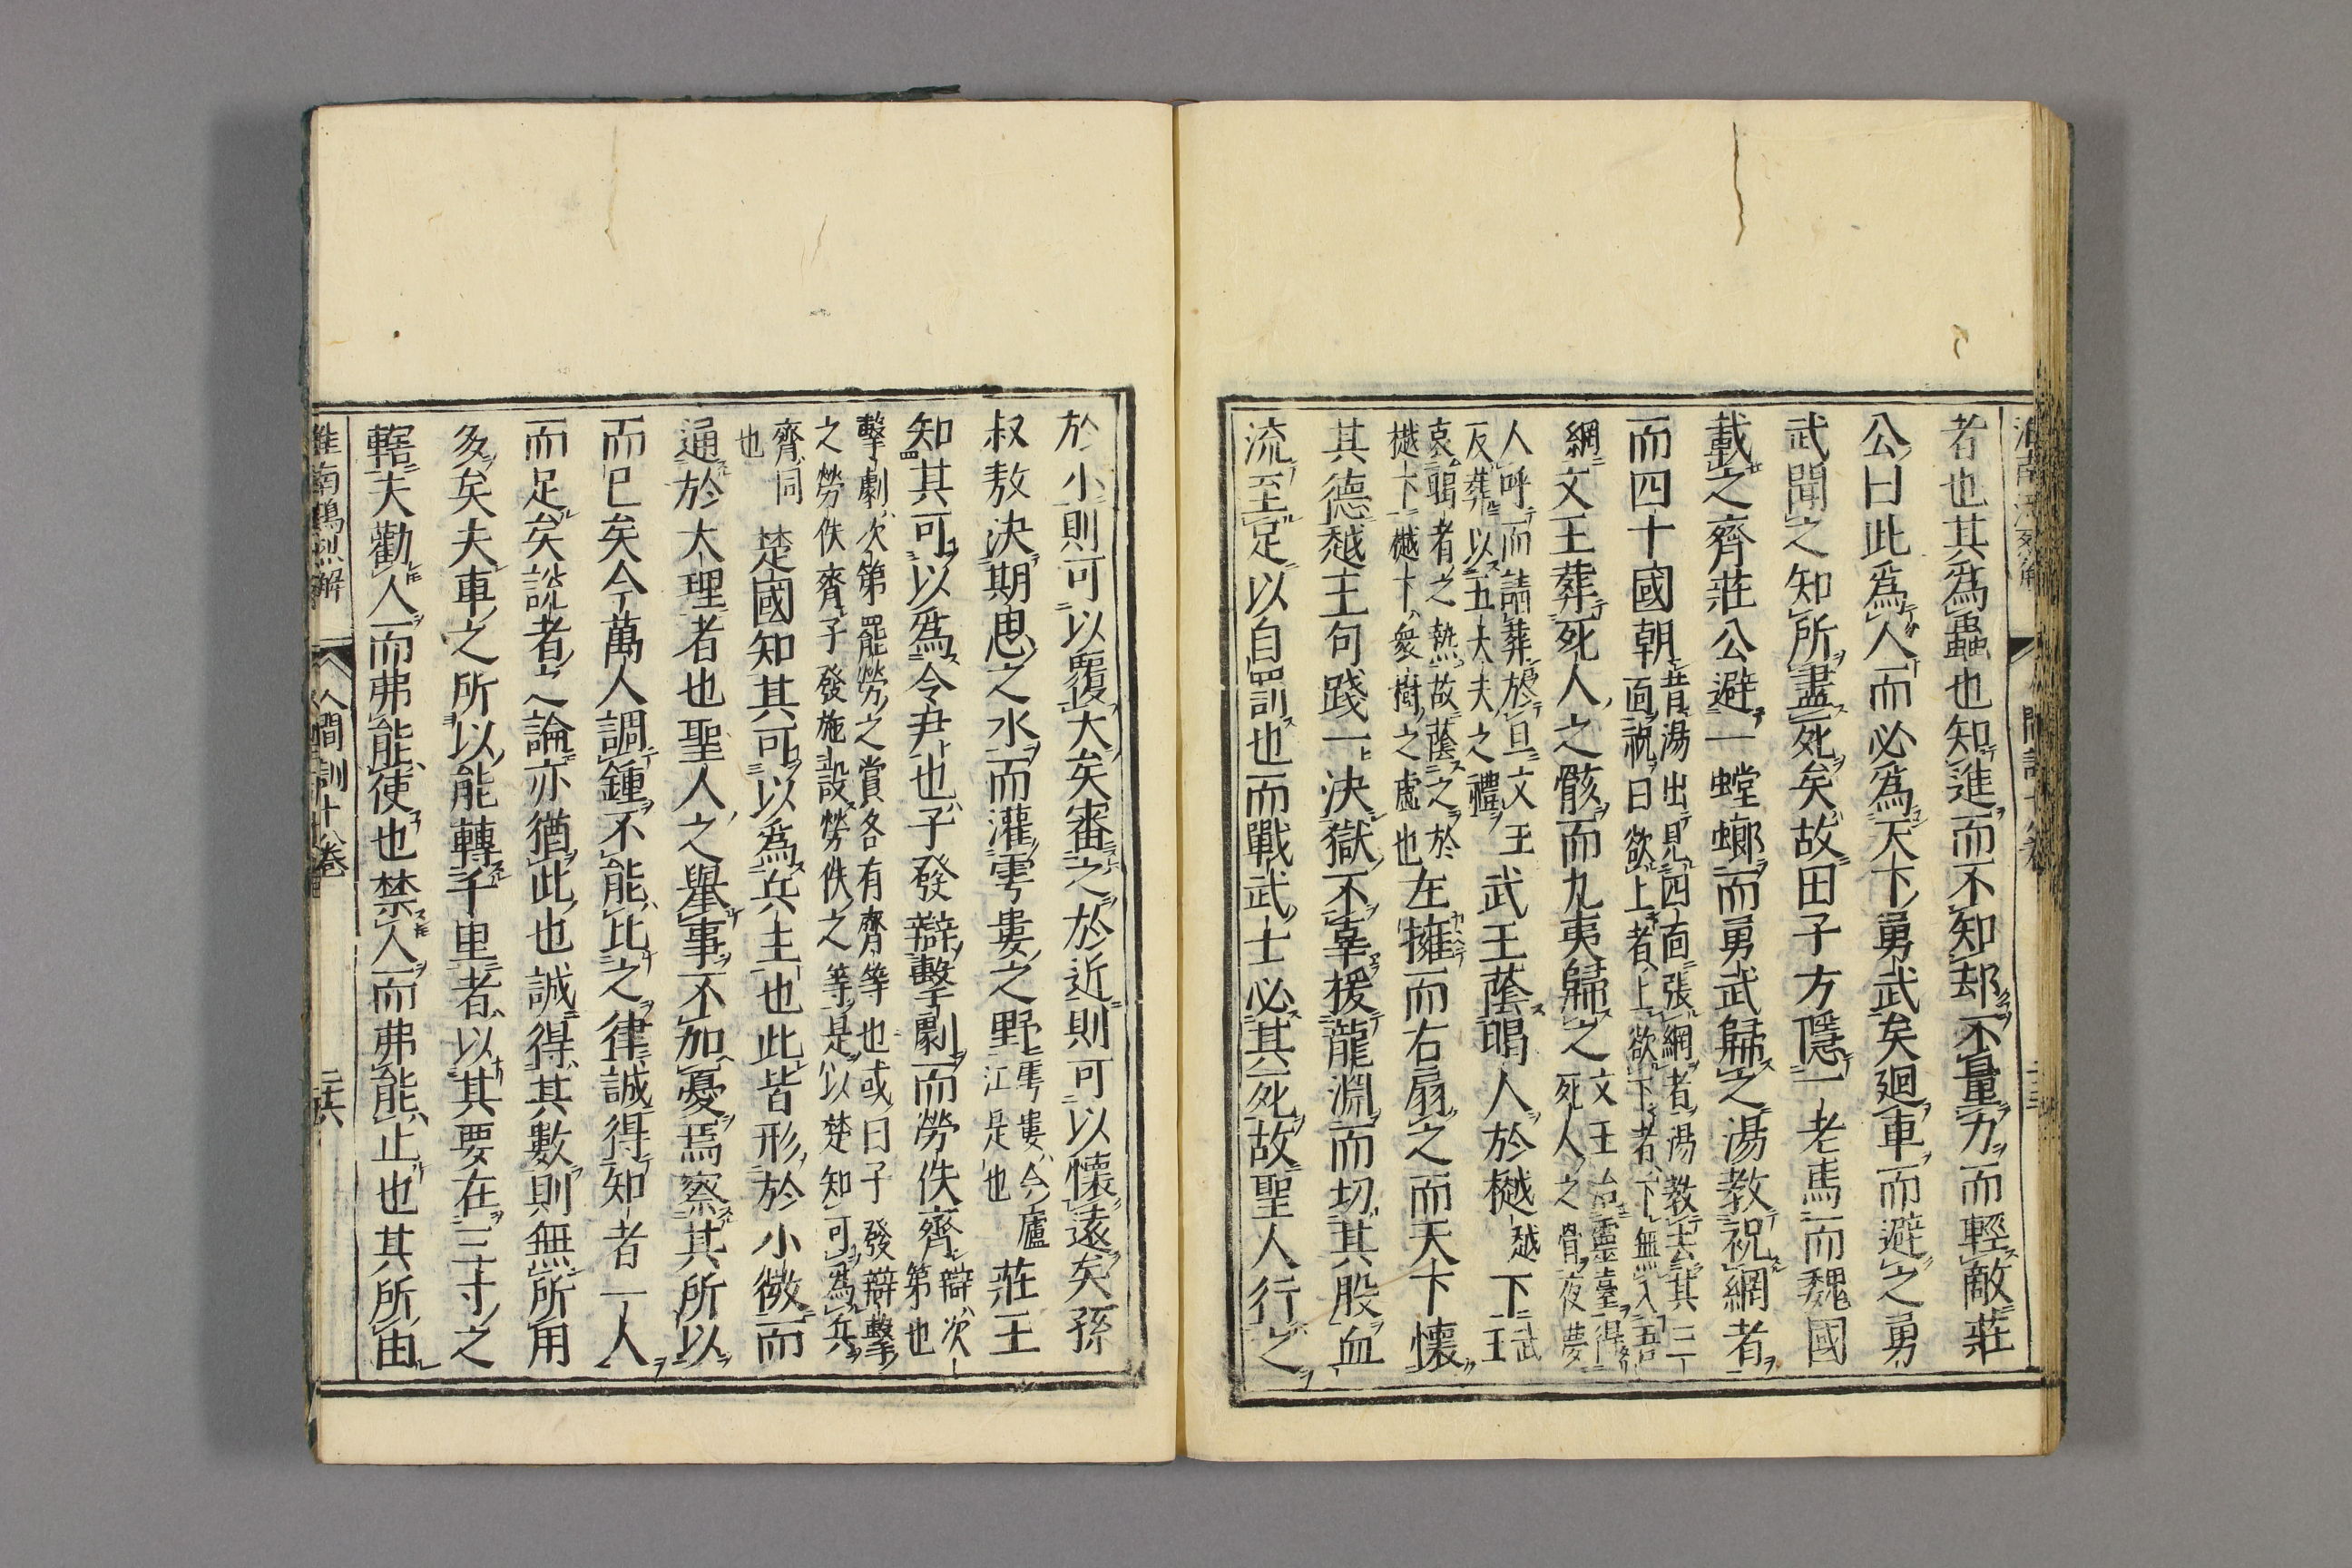 者也其爲蟲也知進而不知却不量力而輕敵莊
公曰此爲人而必爲天下勇武矣廻車而避之勇
武聞之知所盡死矣故田子方隱一老馬而魏國
載之齊莊公避一螳螂而勇武歸之湯教祝網者
而四十國朝昔湯出見四面張網者湯教去其三面祝曰欲上者上欲下者下無入吾
網文王葬死人之骸而九夷歸之文王治靈臺得死人之骨夜夢
人呼而請葬於旦文王反葬以五大夫之禮武王蔭暍人於樾下武王
哀暍者之熱故蔭之於樾下樾下衆樹之虛也左擁而右扇之而天下懷
其德越王句踐一決獄不辜援龍淵而切其股血
流至足以自罰也而戰武士必其死故聖人行之
於小則可以覆大矣審之於近則可以懷遠矣孫
叔敖決期思之水而灌雩婁之野雩婁今廬江是也莊王
知其可以爲令尹也子發辯擊劇而勞佚齊辯次第也
擊劇次第罷勞之賞各有齊等也或曰子發辯擊之勞佚齊子發施設勞佚之等是以楚知可爲兵
齊同也楚國知其可以爲兵主也此皆形於小微而
通於大理者也聖人之舉事不加憂焉察其所以
而已矣今萬人調鍾不能比之律誠得知者一人
而足矣說者之論亦猶此也誠得其數則無所用
多矣夫車之所以能轉千里者以其要在三寸之
轄夫勸人而弗能使也禁人而弗能止也其所由
淮南鴻烈解 人間訓十八卷 二十六